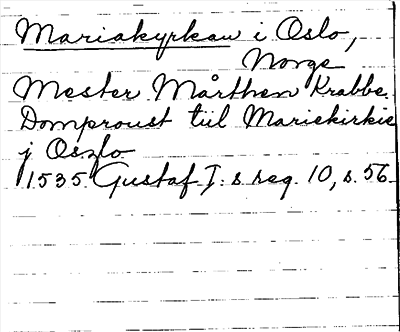 Mariakyrkan i Oslo,
Norge
Mester Mårthen Krabbe.
Domproust till Mariekirkie
j Oszlo
1535 Gustaf I: s reg. 10, s. 56